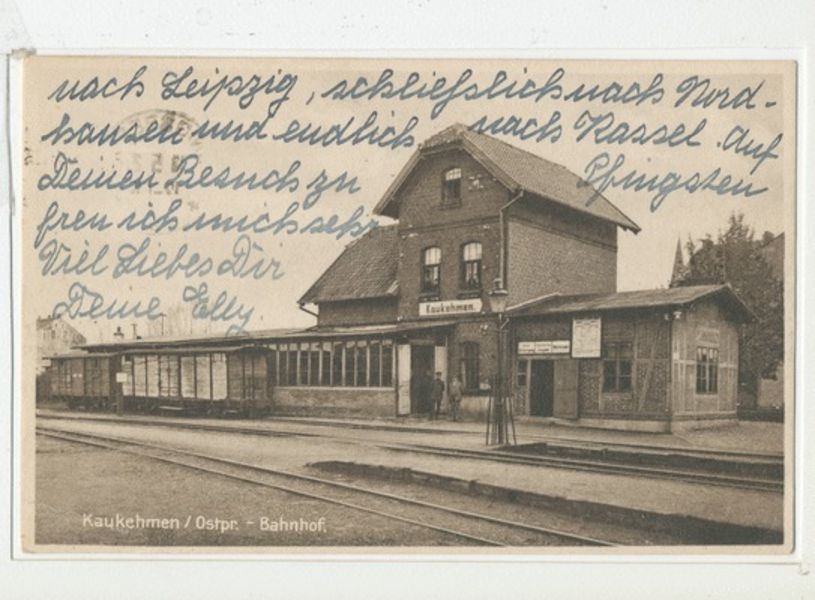 nach Leipzig, schließlich nach Nord-
hausen und endlich nach Kassel. Auf
Deinen Besuch zu Pfingsten
freu ich mich sehr
Viel Liebes Dir
Deine Elly
Kaukehmen.
Kaukehmen / Ostpr. - Bahnhof.